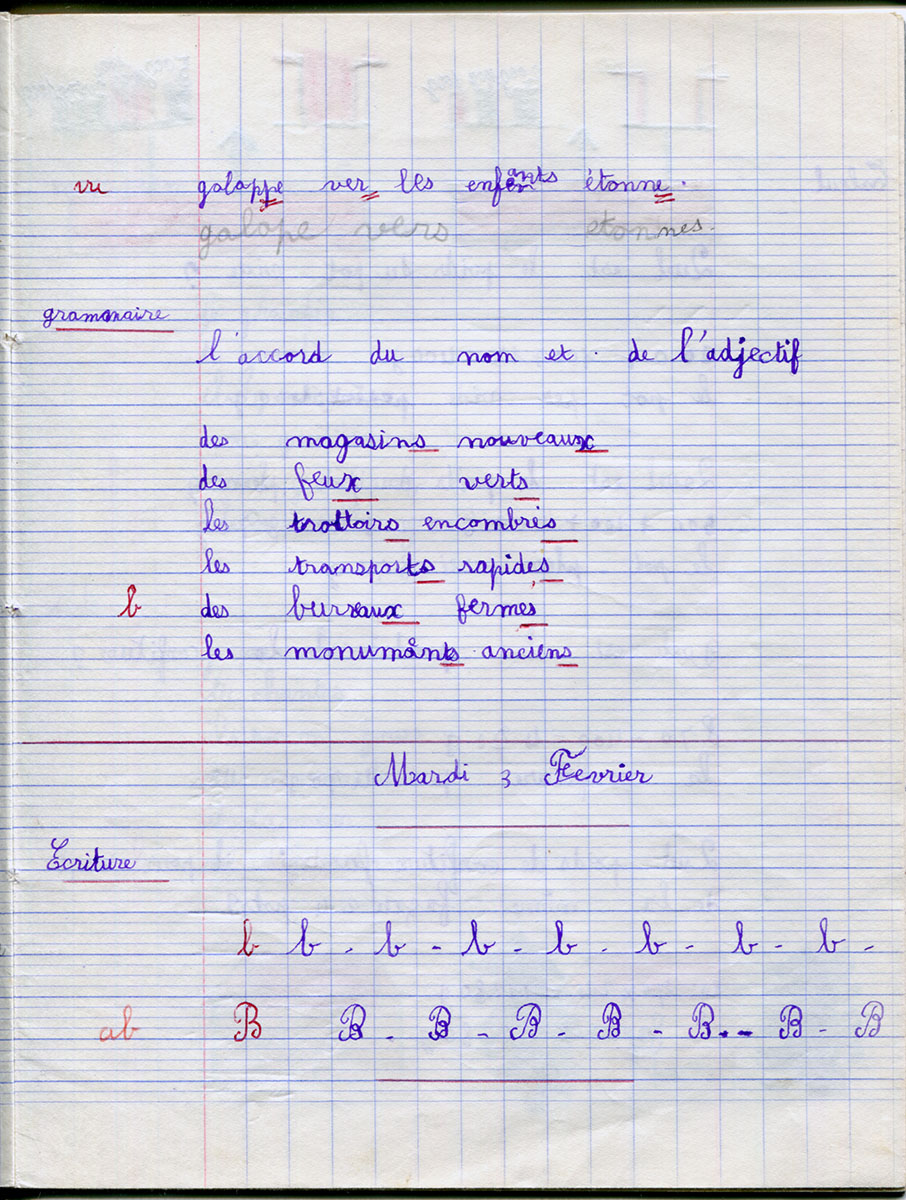 vu galoppe ver les enfants étonne.
galope vers etonnes.
grammaire
l'accord du nom et. de l'adjectif
des magasins nouveaux
des feux verts
les trottoirs encombrés
les transports rapides
b des bureaux fermes
les monumânts anciens
Mardi 3 Fevrier
Ecriture
b b - b - b - b - b - b - b -
ab B B - B - B - B - B - B - B